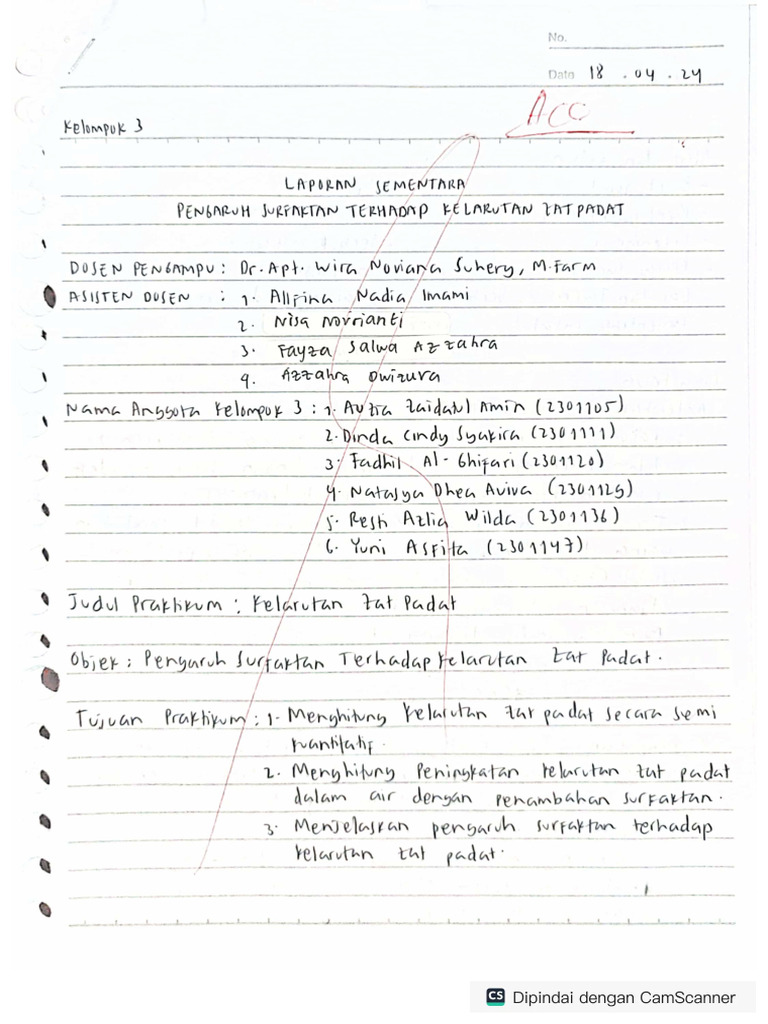 No.
Date 18 . 04 . 24
ACC
Kelompok 3
LAPORAN SEMENTARA
PENGARUH SURFAKTAN TERHADAP KELARUTAN ZAT PADAT
DOSEN PENGAMPU : Dr. Apt. Wira Noviana Suhery, M.Farm
ASISTEN DOSEN : 1. Allfina Nadia Imami
2. Nisa Novrianti
3. Fayza Salwa Azzahra
4. Azzahra Dwizura
Nama Anggota Kelompok 3 : 1. Auzra Zaidatul Amin (2301105)
2. Dinda Cindy Syakira (2301111)
3. Fadhil Al-Ghifari (2301120)
4. Natasya Dhea Aviva (2301125)
5. Resti Azlia Wilda (2301136)
6. Yuni Asfita (2301147)
Judul Praktikum : Kelarutan Zat Padat
Objek : Pengaruh Surfaktan Terhadap Kelarutan Zat Padat.
Tujuan Praktikum : 1. Menghitung kelarutan zat padat secara semi
kuantitatif.
2. Menghitung Peningkatan kelarutan zat padat
dalam air dengan penambahan surfaktan.
3. Menjelaskan pengaruh surfaktan terhadap
kelarutan zat padat.
CS Dipindai dengan CamScanner